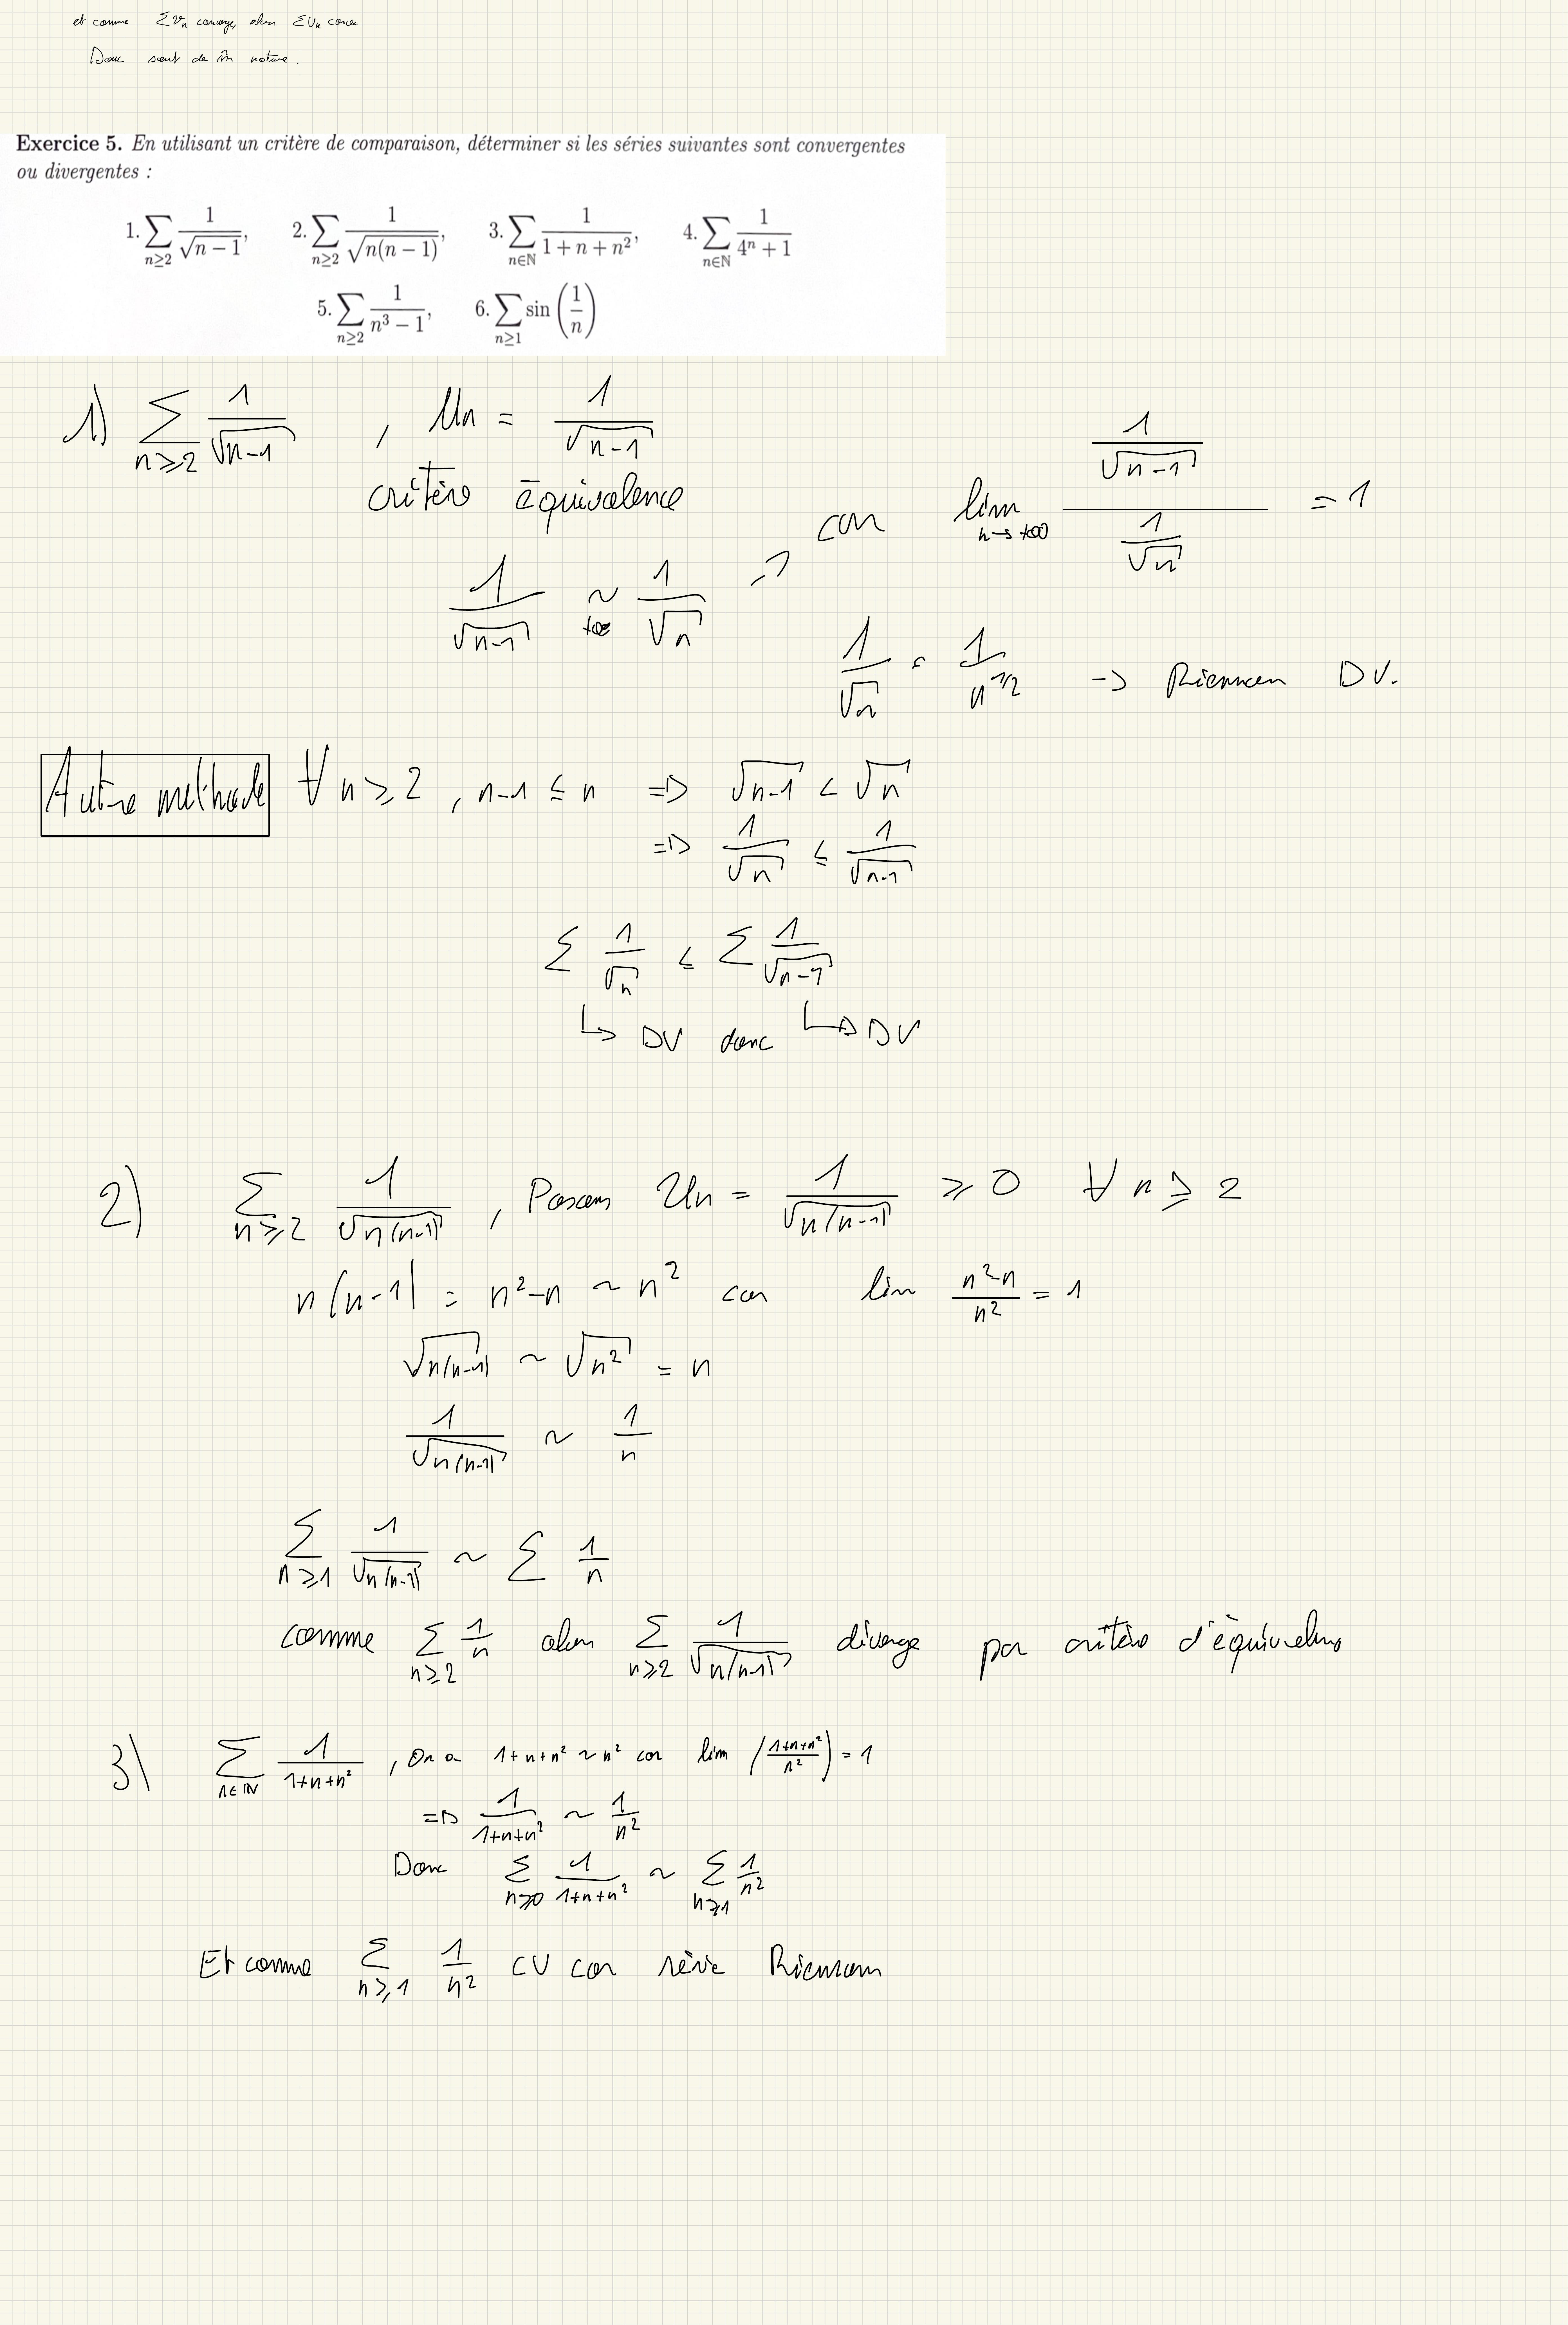 et comme Σvn converge, alors Σun conv
Donc sont de m̂ nature.
Exercice 5. En utilisant un critère de comparaison, déterminer si les séries suivantes sont convergentes
ou divergentes :
1. ∑_{n≥2} 1/√(n − 1), 2. ∑_{n≥2} 1/√(n(n − 1)), 3. ∑_{n∈ℕ} 1/(1 + n + n²), 4. ∑_{n∈ℕ} 1/(4ⁿ + 1)
5. ∑_{n≥2} 1/(n³ − 1), 6. ∑_{n≥1} sin(1/n)
1) ∑_{n≥2} 1/√(n-1) , Un = 1/√(n-1)
critère équivalence
car lim_{n→+∞} (1/√(n-1))/(1/√n) = 1
1/√(n-1) ~_{+∞} 1/√n
1/√n = 1/n^{1/2} -> Riemann DV.
Autre méthode ∀ n ≥ 2 , n-1 ≤ n => √(n-1) < √n
=> 1/√n ≤ 1/√(n-1)
∑ 1/√n ≤ ∑ 1/√(n-1)
↳ DV donc ↳ DV
2) ∑_{n≥2} 1/√(n(n-1)) , Posons Un = 1/√(n(n-1)) ≥ 0 ∀ n ≥ 2
n(n-1) = n²-n ~ n² car lim (n²-n)/n² = 1
√(n(n-1)) ~ √(n²) = n
1/√(n(n-1)) ~ 1/n
∑_{n≥1} 1/√(n(n-1)) ~ ∑ 1/n
comme ∑_{n≥2} 1/n alors ∑_{n≥2} 1/√(n(n-1)) diverge par critère d'équivalence
3) ∑_{n∈ℕ} 1/(1+n+n²) , On a 1+n+n² ~ n² car lim ((1+n+n²)/n²) = 1
=> 1/(1+n+n²) ~ 1/n²
Donc ∑_{n≥0} 1/(1+n+n²) ~ ∑_{n≥1} 1/n²
Et comme ∑_{n≥1} 1/n² CV car série Riemann